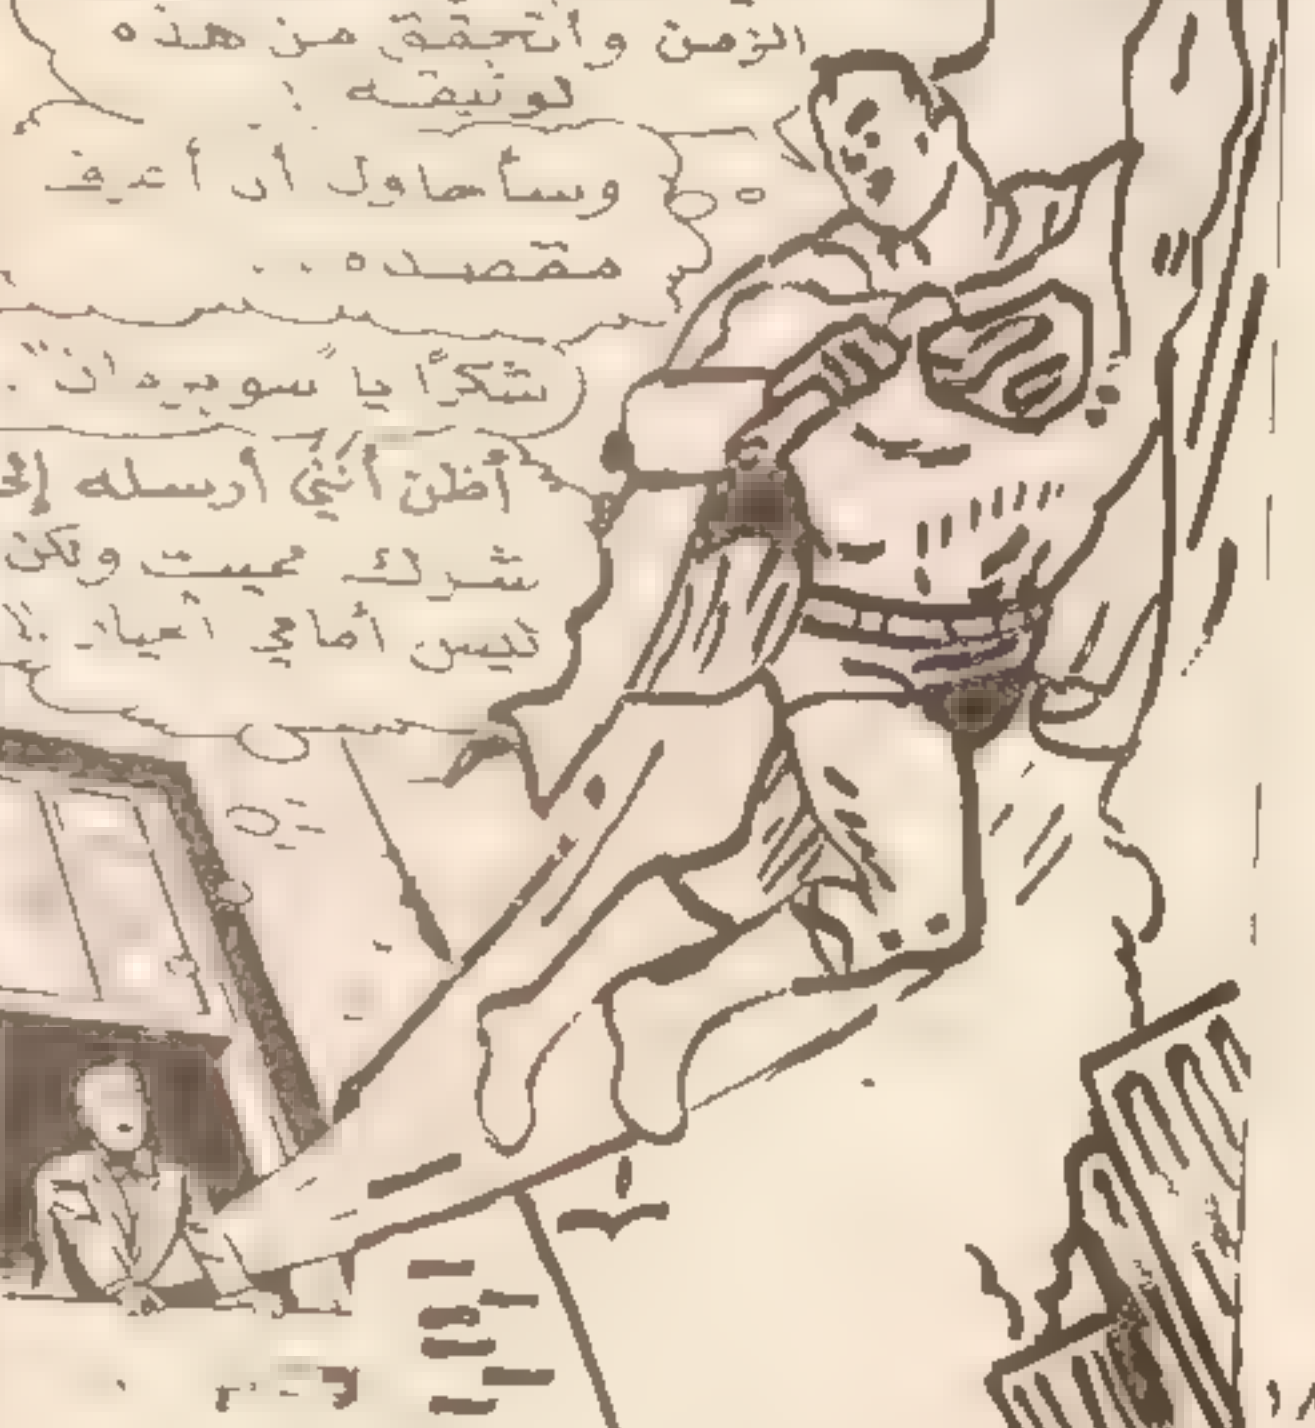 الزمن وأتحقق من هذه
وسأحاول أن أعرف
مقصده..
شكراً يا "سوبرمان"..
أظن أنني أرسله إلى
شرك مميت ولكن
ليس أمامي